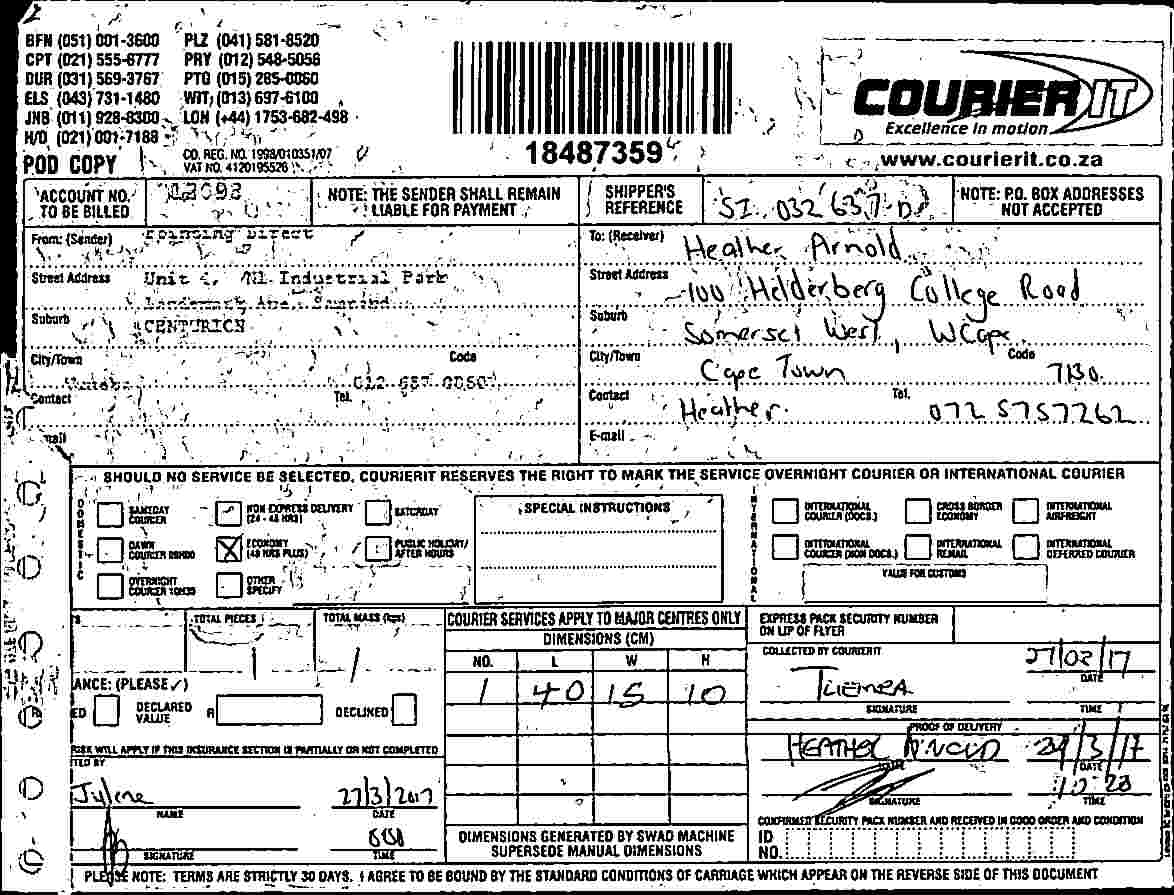 BFN (051) 001-3600 PLZ (041) 581-8520
CPT (021) 555-6777 PRY (012) 548-5056
DUR (031) 569-3767 PTG (015) 285-0060
ELS (043) 731-1480 WIT (013) 697-6100
JNB (011) 928-8300 LON (+44) 1753-682-498
H/O (021) 001-7188
POD COPY
CO. REG. NO. 1998/010351/07
VAT NO. 4120195526
18487359
COURIER IT
Excellence in motion
www.courierit.co.za
ACCOUNT NO. TO BE BILLED
NOTE: THE SENDER SHALL REMAIN LIABLE FOR PAYMENT
SHIPPER'S REFERENCE SI 032 637
NOTE: P.O. BOX ADDRESSES NOT ACCEPTED
From: (Sender) Direct
Street Address Unit Industrial Park
Suburb
CENTURION
City/Town Code
Contact Tel. 012 657
To: (Receiver) Heather Arnold
Street Address 100 Helderberg College Road
Suburb Somerset West, W Cape
City/Town Cape Town Code 7130.
Contact Heather. Tel. 072 5757262
E-mail
SHOULD NO SERVICE BE SELECTED, COURIERIT RESERVES THE RIGHT TO MARK THE SERVICE OVERNIGHT COURIER OR INTERNATIONAL COURIER
DOMESTIC
SAMEDAY COURIER
NON EXPRESS DELIVERY (24 - 48 HRS)
SATURDAY
DAWN COURIER 09H00
ECONOMY (48 HRS PLUS)
PUBLIC HOLIDAY/ AFTER HOURS
OVERNIGHT COURIER 10H30
OTHER SPECIFY
SPECIAL INSTRUCTIONS
INTERNATIONAL
INTERNATIONAL COURIER (DOCS.)
CROSS BORDER ECONOMY
INTERNATIONAL AIRFREIGHT
INTERNATIONAL COURIER (NON DOCS.)
INTERNATIONAL REMAIL
INTERNATIONAL DEFERRED COURIER
VALUE FOR CUSTOMS
TOTAL PIECES 1
TOTAL MASS (kgs) 1
ANCE: (PLEASE ✓)
ED DECLARED VALUE R DECLINED
RISK WILL APPLY IF THIS INSURANCE SECTION IS PARTIALLY OR NOT COMPLETED
TED BY
Jylene 27/3/2017
NAME DATE
SIGNATURE TIME
COURIER SERVICES APPLY TO MAJOR CENTRES ONLY
DIMENSIONS (CM)
NO. L W H
1 40 15 10
DIMENSIONS GENERATED BY SWAD MACHINE
SUPERSEDE MANUAL DIMENSIONS
EXPRESS PACK SECURITY NUMBER ON LIP OF FLYER
COLLECTED BY COURIERIT
27/03/17
DATE
SIGNATURE TIME
PROOF OF DELIVERY
HEATHER ARNOLD 29/3/17
DATE
SIGNATURE TIME
CONFIRMED SECURITY PACK NUMBER AND RECEIVED IN GOOD ORDER AND CONDITION
ID NO.
PLEASE NOTE: TERMS ARE STRICTLY 30 DAYS. I AGREE TO BE BOUND BY THE STANDARD CONDITIONS OF CARRIAGE WHICH APPEAR ON THE REVERSE SIDE OF THIS DOCUMENT